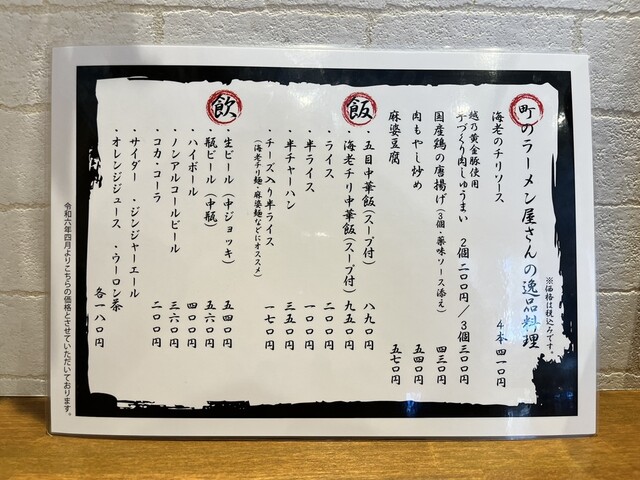 町のラーメン屋さんの逸品料理
※価格は税込みです。
海老のチリソース 4本 四一〇円
越乃黄金豚使用
手づくり肉しゅうまい 2個 二〇〇円/3個 三〇〇円
国産鶏の唐揚げ(3個・薬味ソース添え) 四三〇円
肉もやし炒め 五四〇円
麻婆豆腐 五七〇円
飯
・五目中華飯(スープ付) 八九〇円
・海老チリ中華飯(スープ付) 九五〇円
・ライス 二〇〇円
・半ライス 一〇〇円
・半チャーハン 三五〇円
・チーズ入り半ライス 一七〇円
(海老チリ麺・麻婆麺などにオススメ)
飲
・生ビール(中ジョッキ) 五四〇円
・瓶ビール(中瓶) 五六〇円
・ハイボール 四〇〇円
・ノンアルコールビール 三六〇円
・コカ・コーラ 二〇〇円
・サイダー ・ジンジャーエール
・オレンジジュース ・ウーロン茶 各一八〇円
令和六年四月よりこちらの価格とさせていただいております。